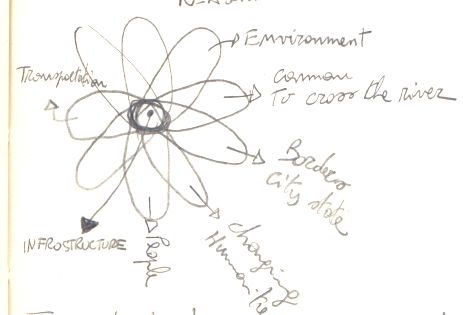 Environment
Transportation
Common
To cross the river
Borders
City state
Changing
INFROSTRUCTURE
People